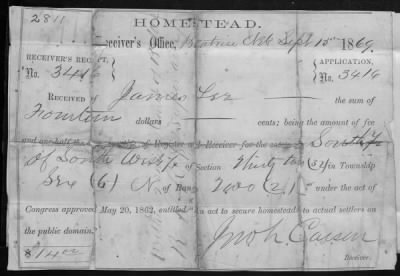 2811
HOMESTEAD.
Receiver's Office, Beatrice Neb Sept 15 1869.
RECEIVER'S RECEIPT, APPLICATION,
No. 3416 No. 3416
RECEIVED of James the sum of
Fourteen dollars cents; being the amount of fee
and one-half the of Register and Receiver for the South ½
of South West ¼ of Section Thirty two (32) in Township
(6) N of Range Two (2) under the act of
Congress approved May 20, 1862, entitled "An act to secure homesteads to actual settlers on
the public domain."
$14 Jno L. Carson
Receiver.